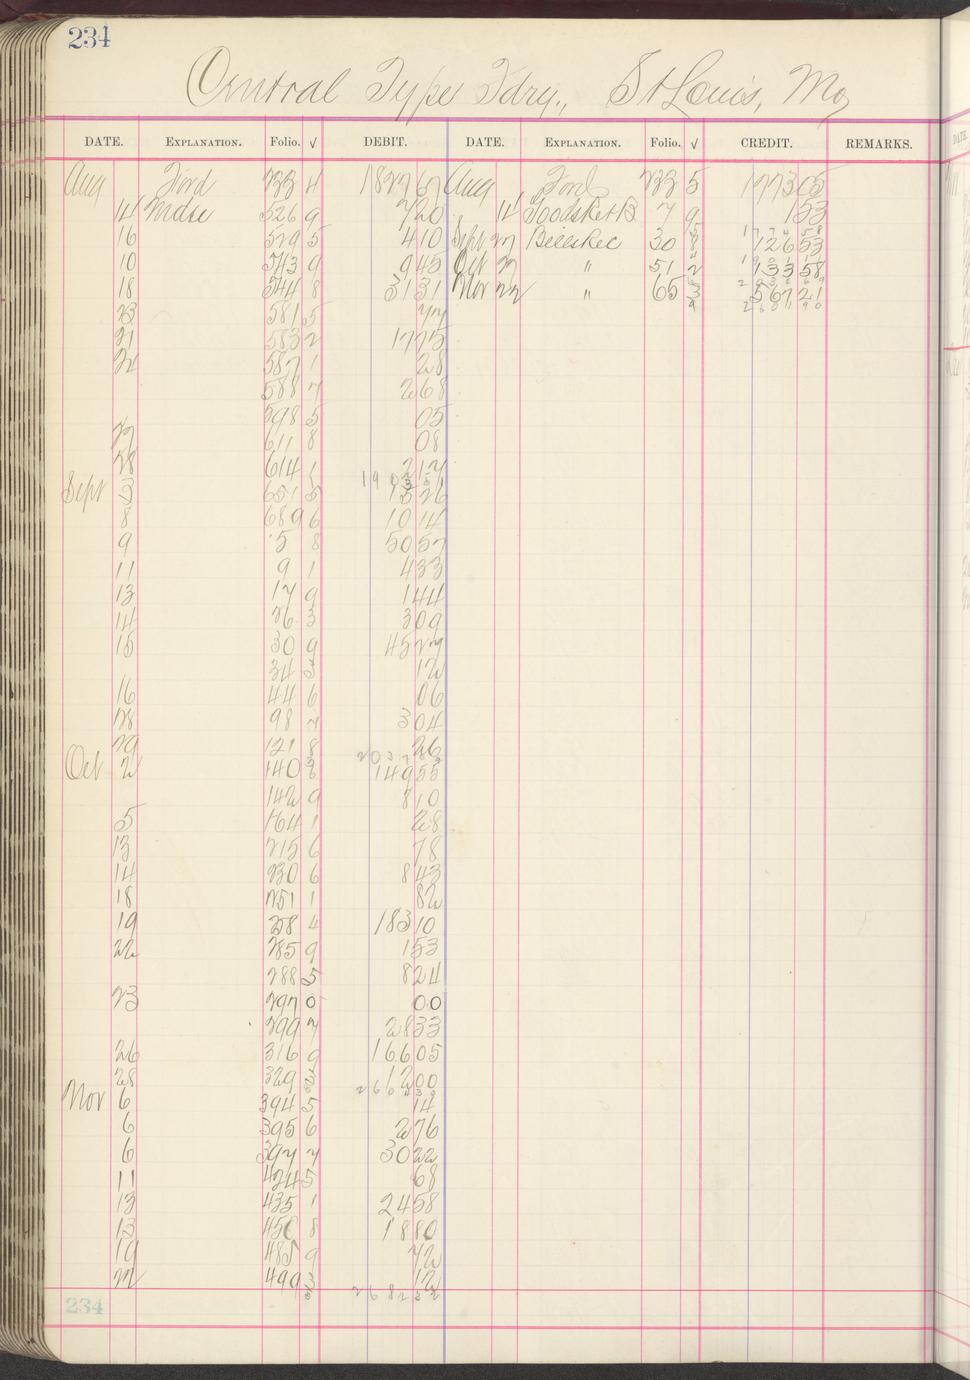 234
Central Type Fdry., St Louis, Mo
DATE. EXPLANATION. Folio. √ DEBIT. DATE. EXPLANATION. Folio. √ CREDIT. REMARKS.
Aug Ford 233 4 1827 67 Aug Ford 233 5 1773 05
14 Mdse 526 9 7 20 14 Goods Ret B 7 9 1 53
16 529 5 4 10 Sept 27 Bills Rec 30 8 126 53
10 543 9 9 45 Oct 27 " 51 2 133 58
18 544 8 31 31 Nov 22 " 65 3 567 21
23 581 5 77
21 583 2 17 75
24 587 1 28
588 7 2 68
598 5 05
27 611 8 08
28 614 1 2 17
Sept 3 651 5 15 26
8 689 6 10 14
9 5 8 50 57
11 9 1 4 33
13 17 9 1 44
14 26 3 3 09
15 30 9 45 27
34 3 12
16 44 6 06
28 98 7 3 04
29 121 8 26
Oct 2 140 3 149 55
142 9 8 10
5 164 1 28
13 215 6 78
14 230 6 8 43
18 251 1 82
19 258 4 183 10
22 285 9 1 53
288 5 8 24
23 297 0 00
299 7 28 33
26 316 9 166 05
28 329 3 12 00
Nov 6 394 5 14
6 395 6 2 76
6 397 7 30 22
11 424 5 68
13 435 1 24 58
13 456 8 18 80
19 485 9 72
22 499 3 12
2682 32
234